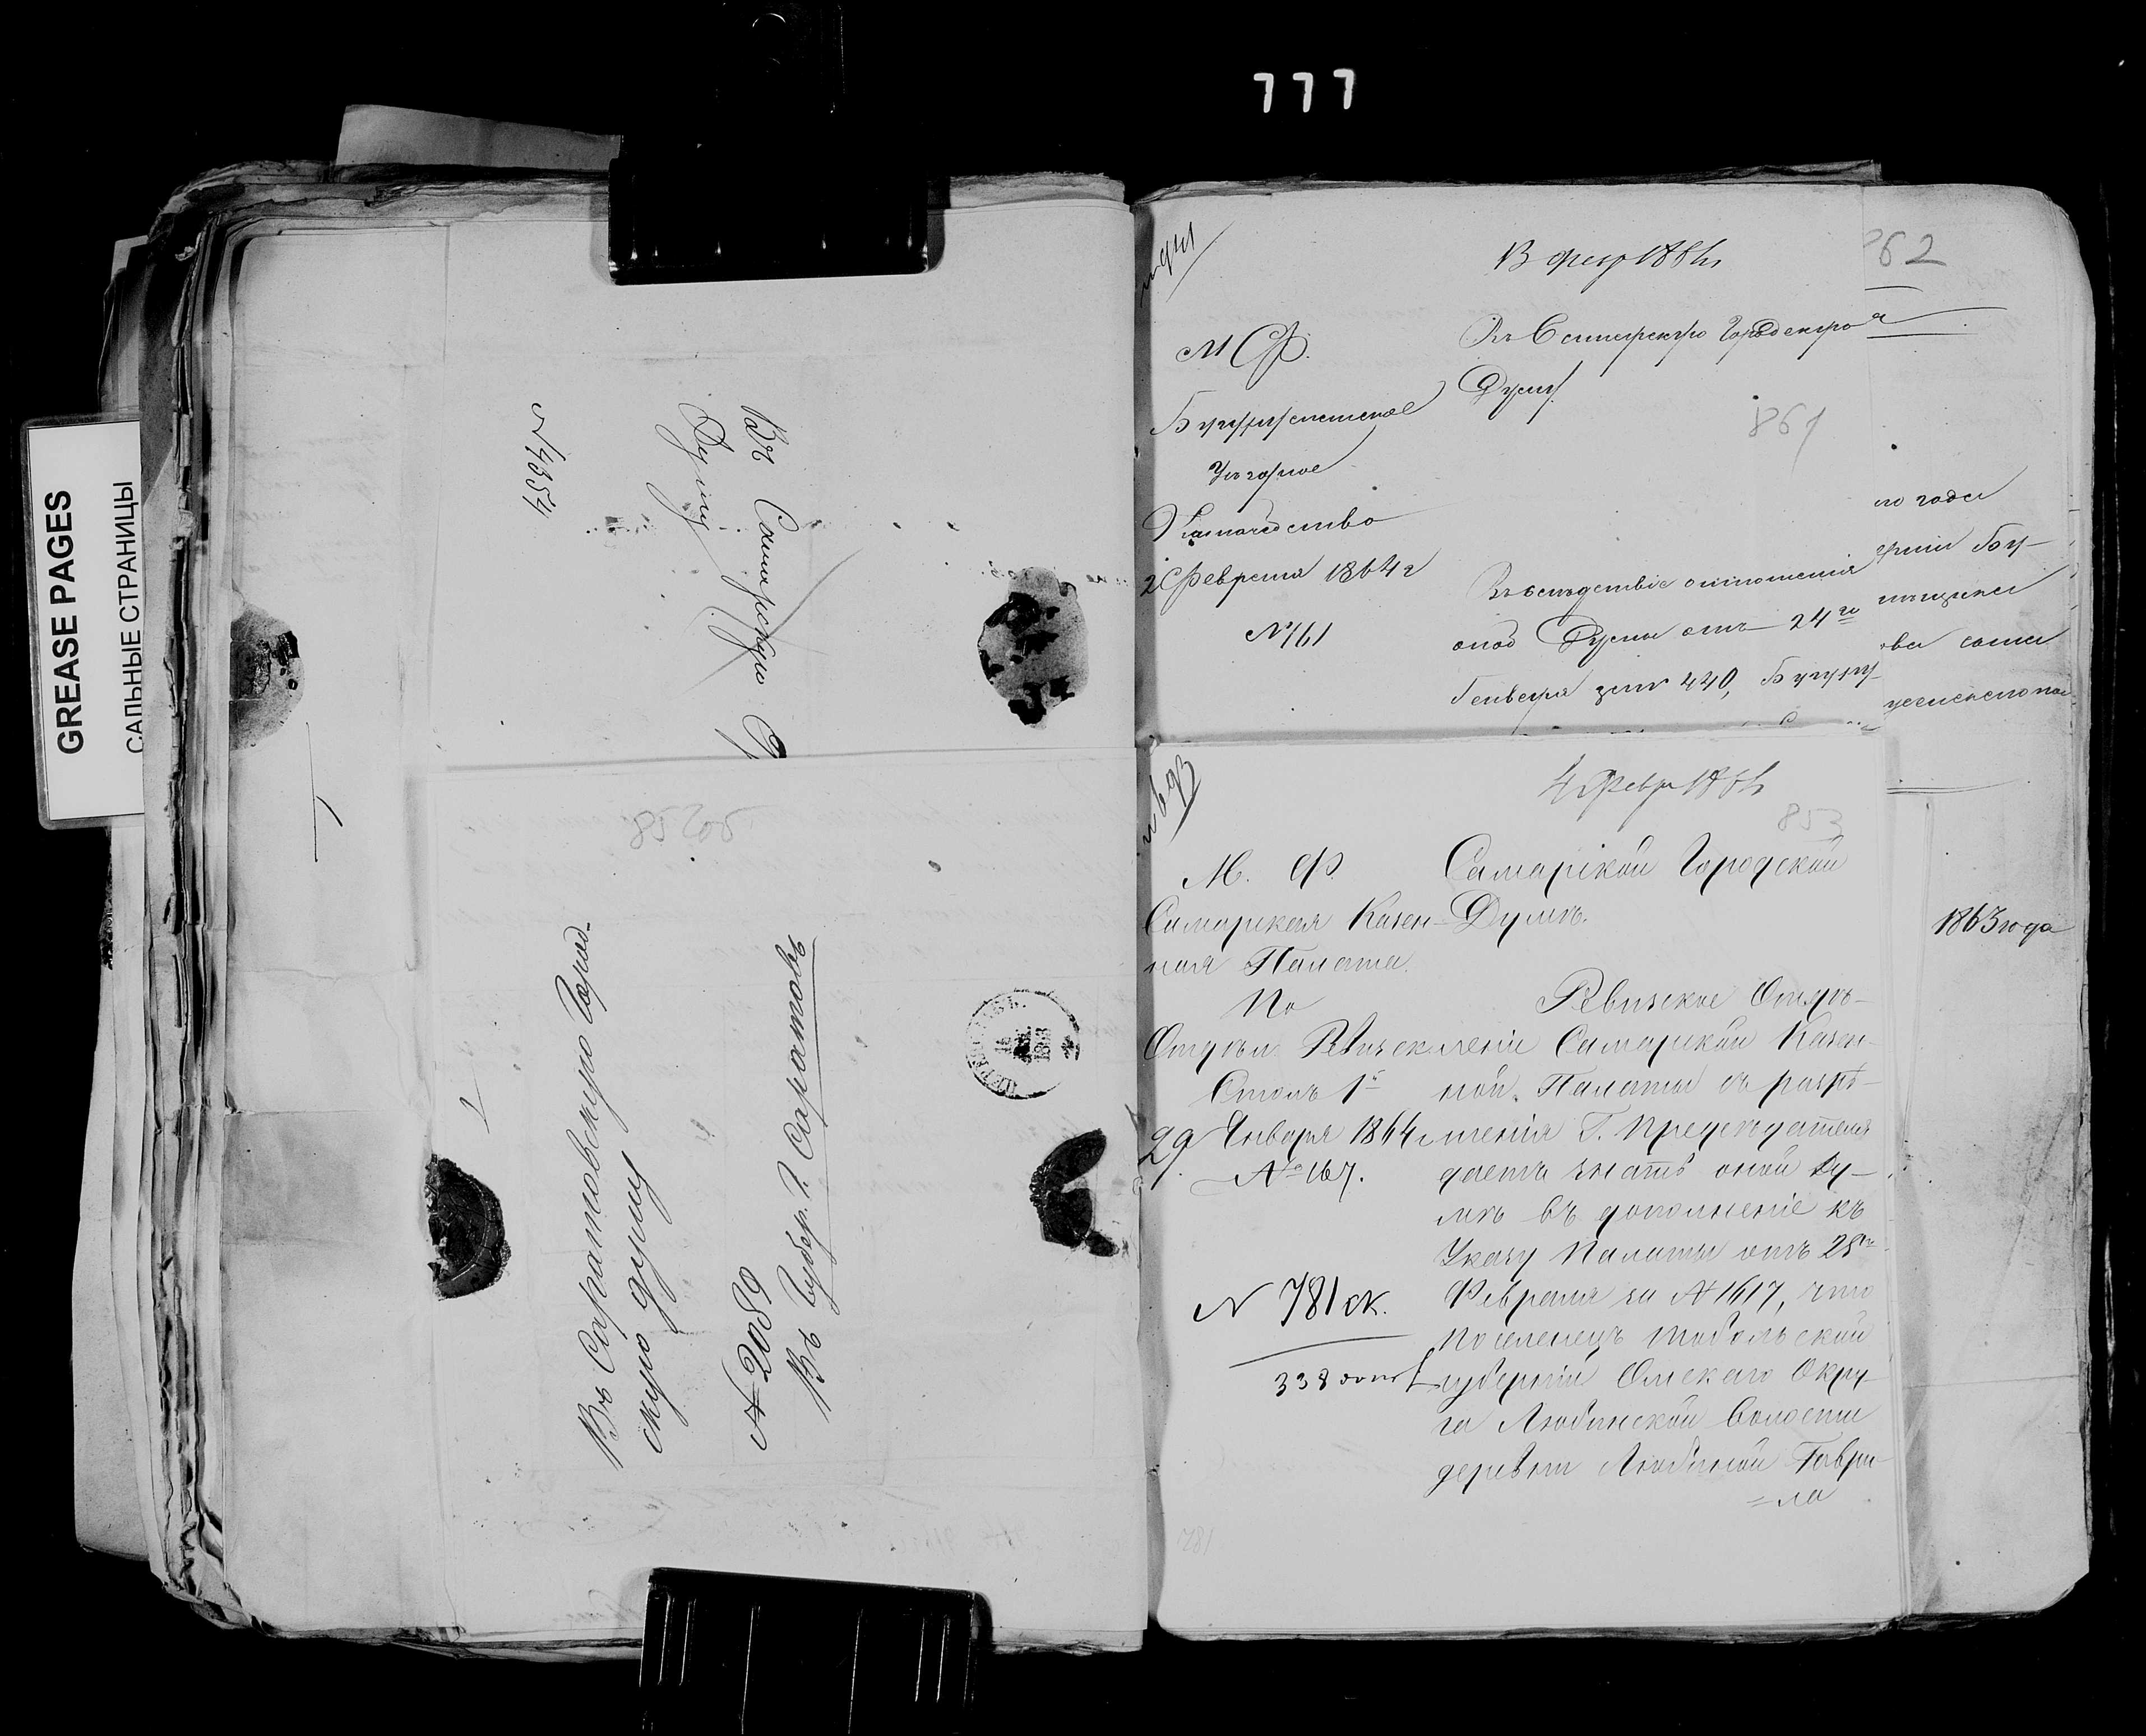 777
GREASE PAGES
САЛЬНЫЕ СТРАНИЦЫ
Въ Самарскую Г
Думу
№4354
852об
Въ Саратовскую Город-
скую думу
№ 2089
Въ Губер. Г. Саратовъ
13 февр 1864
862
М Ф.
Бугурусланское
Уѣздное
Казначейство
2 Февраля 1864 г
№161
Въ Самарскую Городскую
Думу
861
Вслѣдствіе отношенія
оной Думы отъ 24го
Генваря за № 440, Бугуру-
го года
Бу-
4 Февр 1864
853
М. Ф.
Самарская Казен-
ная Палата.
По
Отдѣл. Ревизск
Столъ 1й
29 Января 1864 г
№ 167.
N 781 ск.
338
Самарской Городской
Думѣ.
Ревизское Отдѣ-
леніе Самарской Казен-
ной Палаты съ разрѣ-
шенія Г. Предсѣдателя
даетъ знать оной Ду-
мѣ въ дополненіе къ
Указу Палаты отъ 25го
Февраля за № 1617, что
поселенецъ Тобольской
губерніи Омскаго Окру-
га Любинской Волости
деревни Любиной Гаври-
=ла
1863 года
781